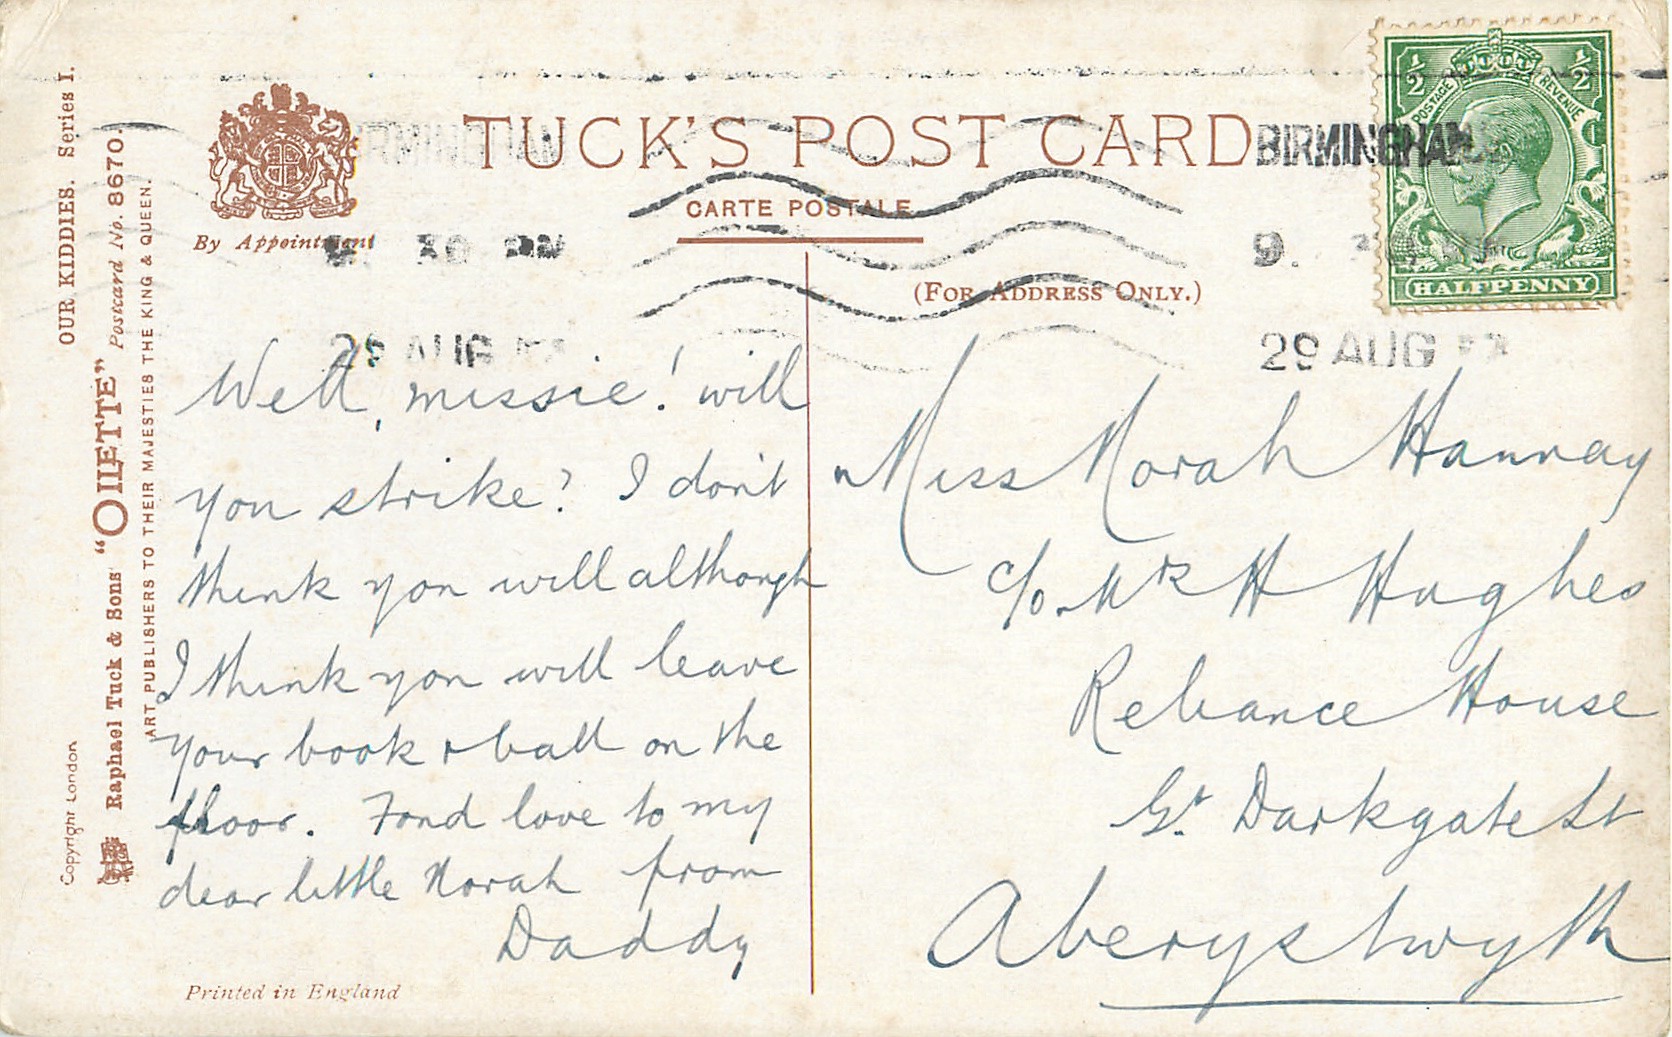 TUCK'S POST CARD
CARTE POSTALE
(FOR ADDRESS ONLY.)
By Appointment
BIRMINGHAM
9. 30
29 AUG
BIRMINGHAM
9.
29 AUG
1/2 1/2
POSTAGE REVENUE
HALFPENNY
OUR KIDDIES. Series I.
"OILETTE" Postcard No. 8670.
Raphael Tuck & Sons'
ART PUBLISHERS TO THEIR MAJESTIES THE KING & QUEEN.
Copyright London
Well, missie! will
you strike? I don't
think you will although
I think you will leave
your book & ball on the
floor. Fond love to my
dear little Norah from
Daddy
Miss Norah Hannay
c/o Mrs H Hughes
Reliance House
Gt. Darkgate St
Aberystwyth
Printed in England